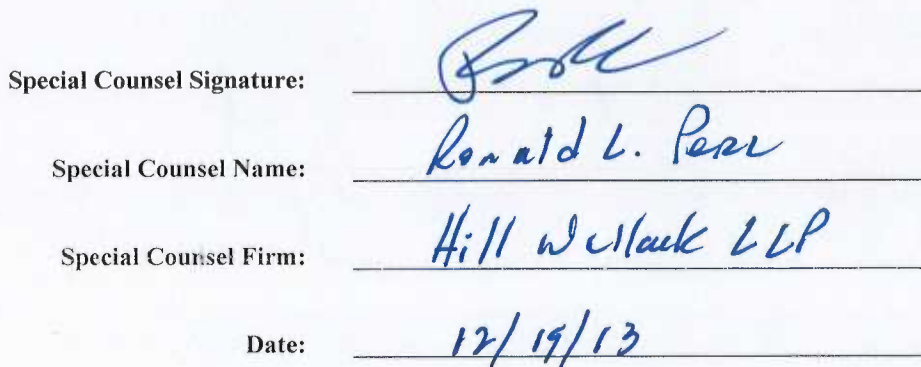 Special Counsel Signature:
Special Counsel Name: Ronald L. Perl
Special Counsel Firm: Hill Wallack LLP
Date: 12/19/13